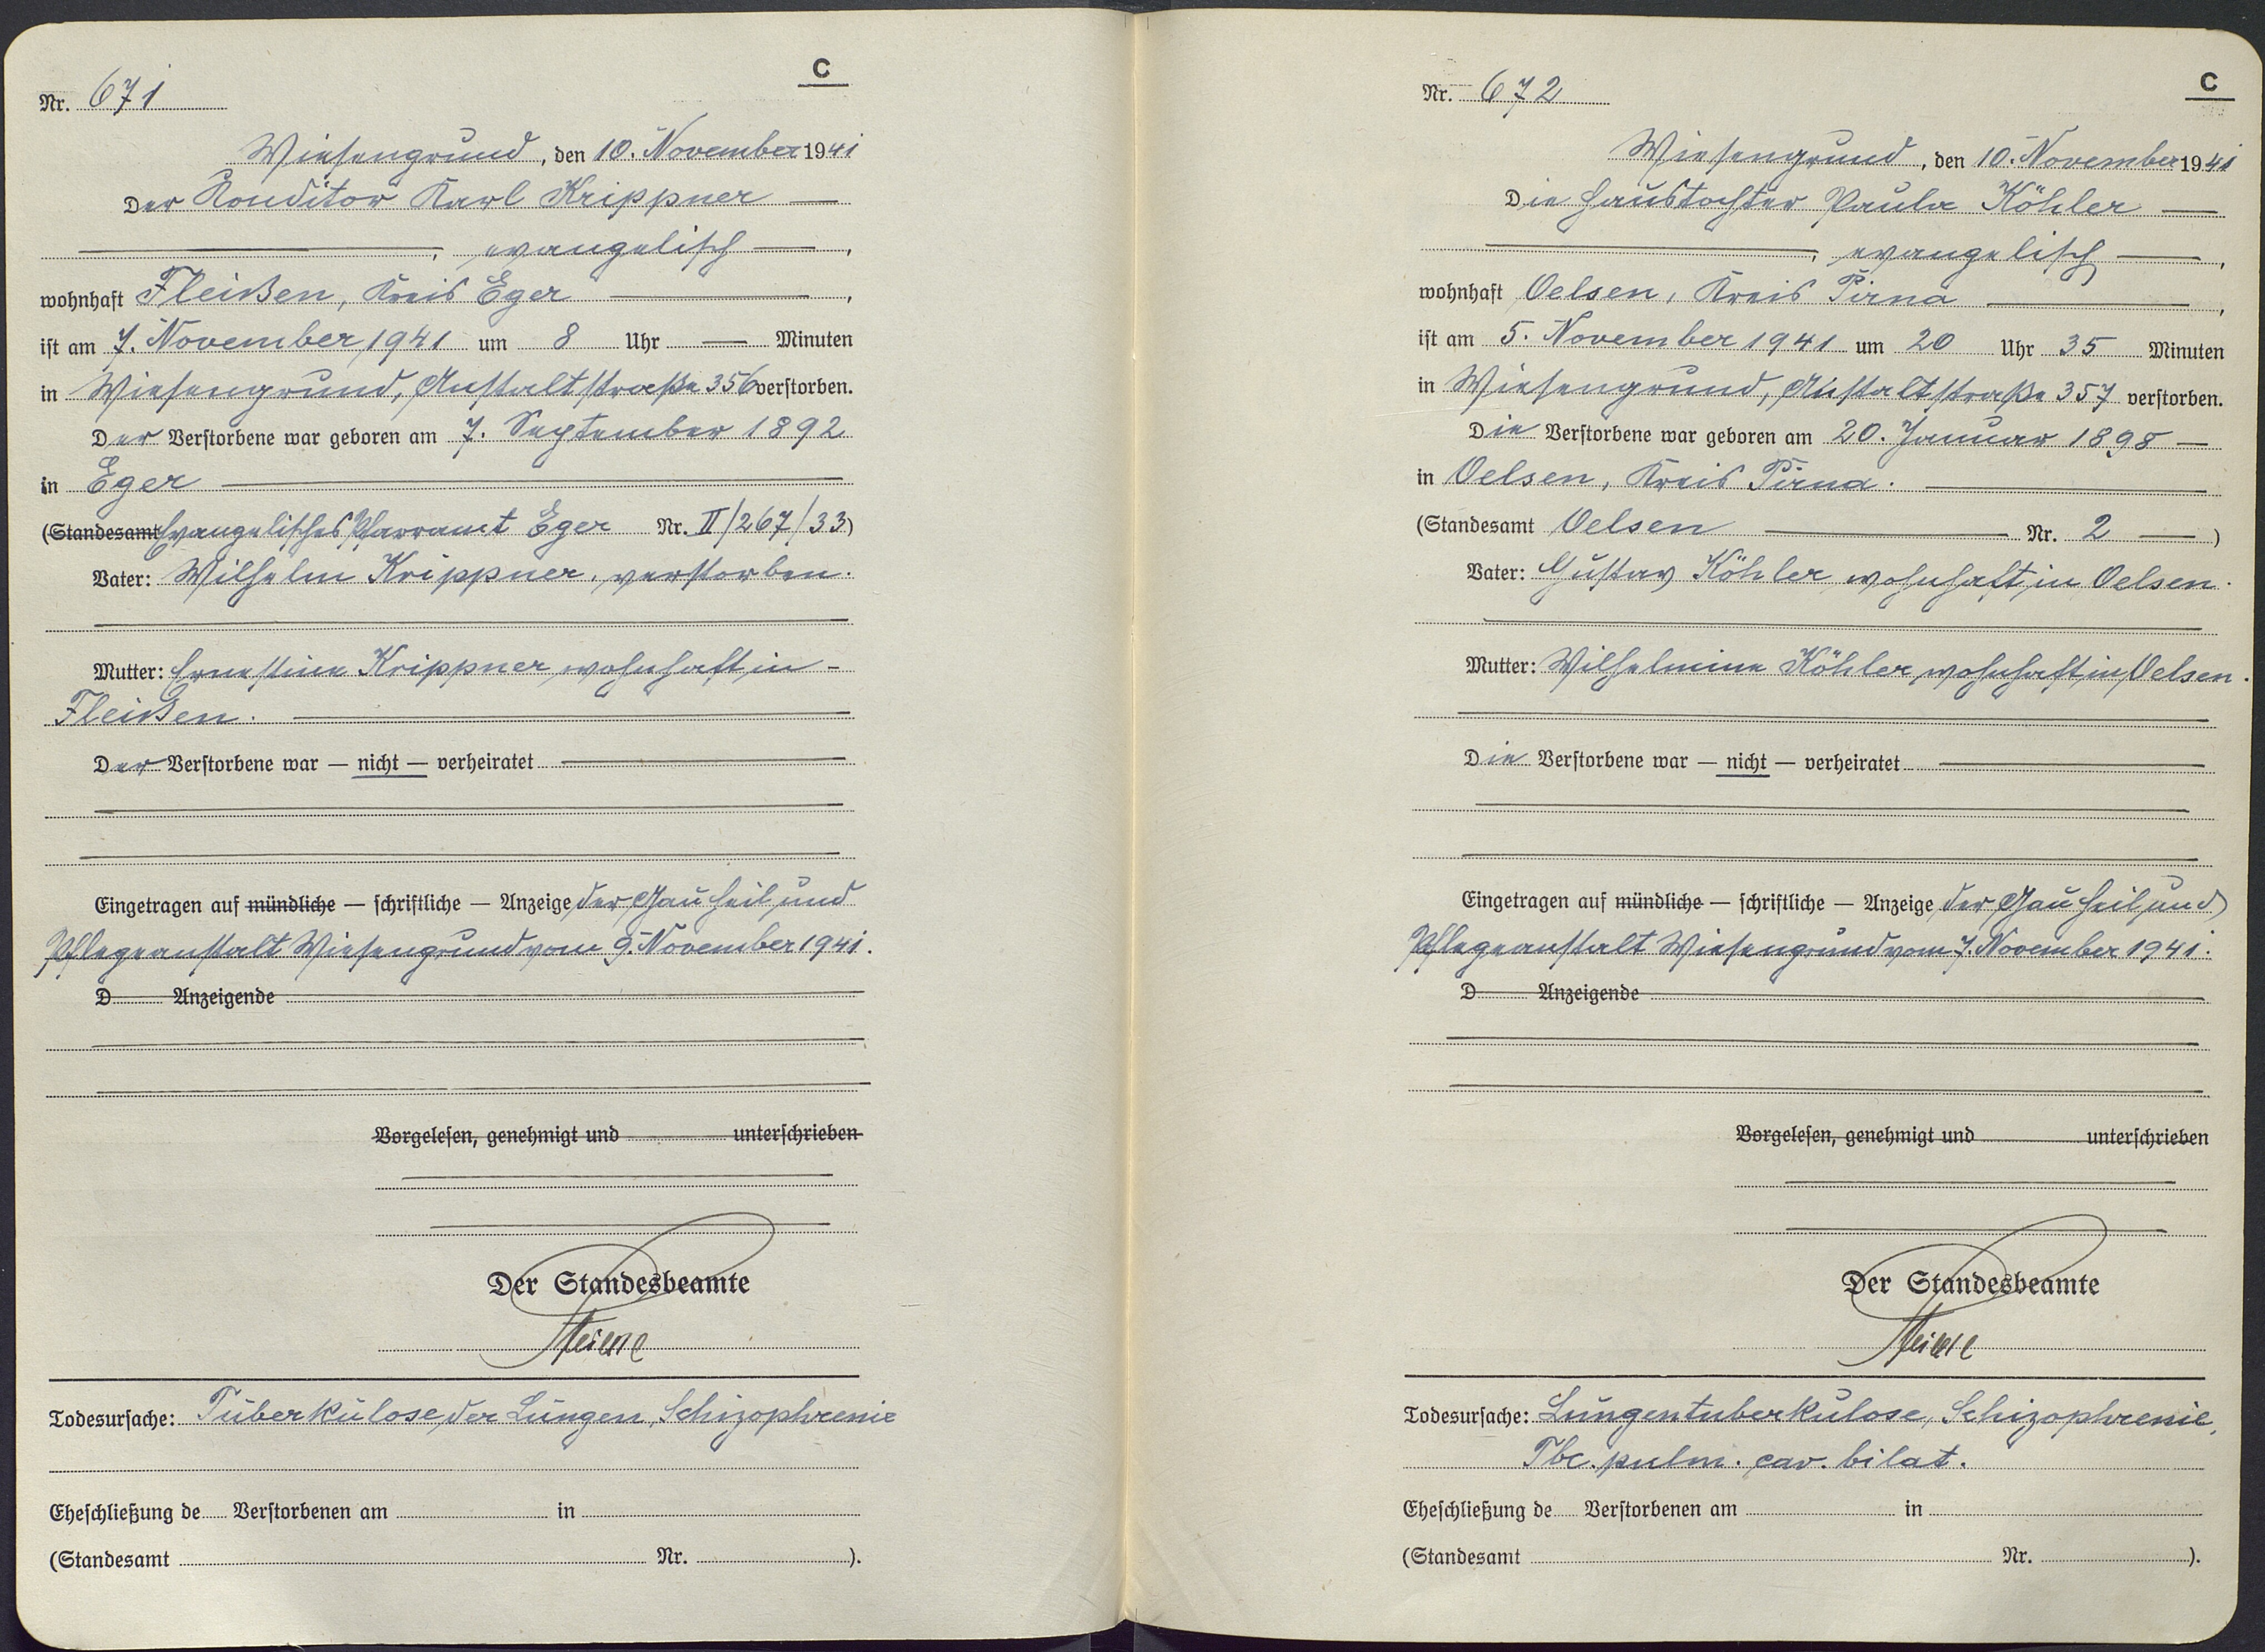 C
Nr. 671
Wiesengrund, den 10. November 1941
Der Konditor Karl Krippner —
—, evangelisch —,
wohnhaft Fleißen, Kreis Eger —,
ist am 7. November 1941 um 8 Uhr — Minuten
in Wiesengrund, Anstaltstraße 356 verstorben.
Der Verstorbene war geboren am 7. September 1892
in Eger —
(Standesamt Evangelisches Pfarramt Eger Nr. II/267/33)
Vater: Wilhelm Krippner, verstorben.
Mutter: Ernestine Krippner, wohnhaft in -
Fleißen. —
Der Verstorbene war — nicht — verheiratet —
Eingetragen auf mündliche — schriftliche — Anzeige der Gau Heil und
Pflegeanstalt Wiesengrund vom 9. November 1941.
D Anzeigende
Vorgelesen, genehmigt und unterschrieben
Der Standesbeamte
Todesursache: Tuberkulose der Lungen, Schizophrenie
Eheschließung de Verstorbenen am in
(Standesamt Nr. ).
C
Nr. 672
Wiesengrund, den 10. November 1941
Die Haustochter Paula Köhler —
—, evangelisch —,
wohnhaft Oelsen, Kreis Pirna —,
ist am 5. November 1941 um 20 Uhr 35 Minuten
in Wiesengrund, Anstaltstraße 357 verstorben.
Die Verstorbene war geboren am 20. Januar 1898 —
in Oelsen, Kreis Pirna. —
(Standesamt Oelsen — Nr. 2 — )
Vater: Gustav Köhler, wohnhaft in Oelsen.
Mutter: Wilhelmine Köhler, wohnhaft in Oelsen.
Die Verstorbene war — nicht — verheiratet —
Eingetragen auf mündliche — schriftliche — Anzeige der Gau Heil und
Pflegeanstalt Wiesengrund vom 7. November 1941.
D Anzeigende
Vorgelesen, genehmigt und unterschrieben
Der Standesbeamte
Todesursache: Lungentuberkulose, Schizophrenie,
Tbc. pulm. cav. bilat.
Eheschließung de Verstorbenen am in
(Standesamt Nr. ).